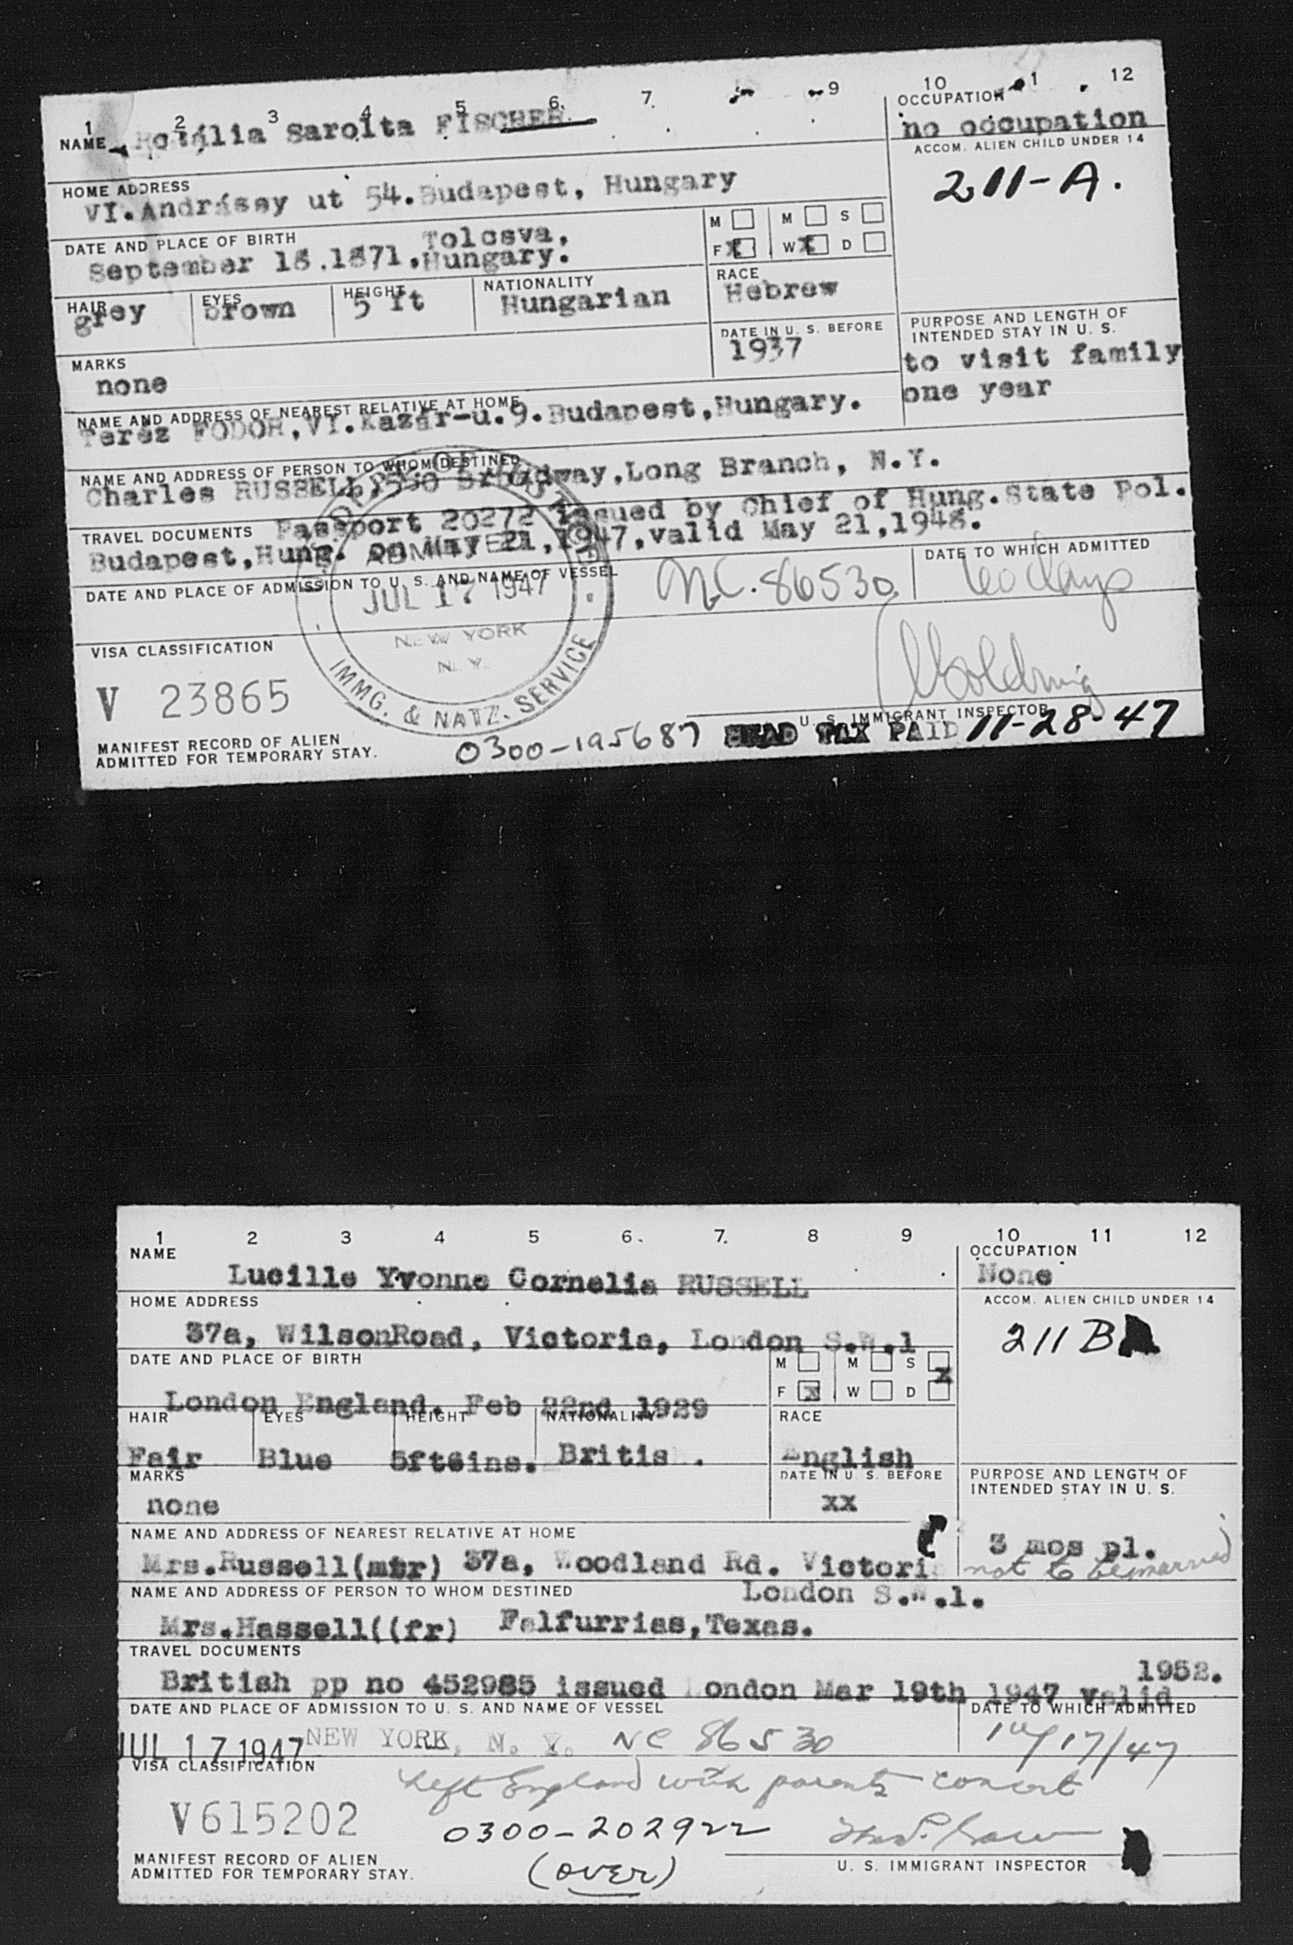 1 2 3 4 5 6. 7. 9 10 1 12
NAME Rotália Sarolta FISCHER
OCCUPATION
no occupation
HOME ADDRESS
VI.Andrássy ut 54.Budapest, Hungary
ACCOM. ALIEN CHILD UNDER 14
211-A.
DATE AND PLACE OF BIRTH
September 18.1871.Tolcsva, Hungary.
M M S
F X W X D
HAIR grey
EYES brown
HEIGHT 5 ft
NATIONALITY Hungarian
RACE
Hebrew
MARKS
none
DATE IN U. S. BEFORE
1937
PURPOSE AND LENGTH OF
INTENDED STAY IN U. S.
to visit family
one year
NAME AND ADDRESS OF NEAREST RELATIVE AT HOME
Teréz FODOR,VI.Kazár-u.9.Budapest,Hungary.
NAME AND ADDRESS OF PERSON TO WHOM DESTINED
Charles RUSSELL,550 Broadway,Long Branch, N.Y.
TRAVEL DOCUMENTS Passport 20272 issued by Chief of Hung.State Pol.
Budapest,Hung. on May 21,1947,valid May 21,1948.
DATE AND PLACE OF ADMISSION TO U. S. AND NAME OF VESSEL
ADMITTED
JUL 17 1947
NEW YORK
N. Y.
IMMG. & NATZ. SERVICE
N.C. 86530
DATE TO WHICH ADMITTED
60 days
VISA CLASSIFICATION
V 23865
U. S. IMMIGRANT INSPECTOR
MANIFEST RECORD OF ALIEN
ADMITTED FOR TEMPORARY STAY.
0300-195687 HEAD TAX PAID 11-28-47
1 2 3 4 5 6. 7. 8 9 10 11 12
NAME
Lucille Yvonne Cornelia RUSSELL
OCCUPATION
None
HOME ADDRESS
37a, WilsonRoad, Victoria, London S.W.1
ACCOM. ALIEN CHILD UNDER 14
211 B
DATE AND PLACE OF BIRTH
London England. Feb 22nd 1929
M M S x
F x W D
HAIR EYES HEIGHT NATIONALITY RACE
Fair Blue 5ft6ins. Britis . English
MARKS
none
DATE IN U. S. BEFORE
xx
PURPOSE AND LENGTH OF
INTENDED STAY IN U. S.
3 mos pl.
not to be married
NAME AND ADDRESS OF NEAREST RELATIVE AT HOME
Mrs.Russell(mtr) 37a, Woodland Rd. Victori
London S.W.1.
NAME AND ADDRESS OF PERSON TO WHOM DESTINED
Mrs.Hassell((fr) Falfurrias,Texas.
TRAVEL DOCUMENTS
British pp no 452985 issued London Mar 19th 1947 valid 1952.
DATE AND PLACE OF ADMISSION TO U. S. AND NAME OF VESSEL
JUL 17 1947 NEW YORK, N. Y. NC 86530
DATE TO WHICH ADMITTED
10/17/47
VISA CLASSIFICATION
Left England with parents consent
V615202
0300-202922
(over)
MANIFEST RECORD OF ALIEN
ADMITTED FOR TEMPORARY STAY.
U. S. IMMIGRANT INSPECTOR